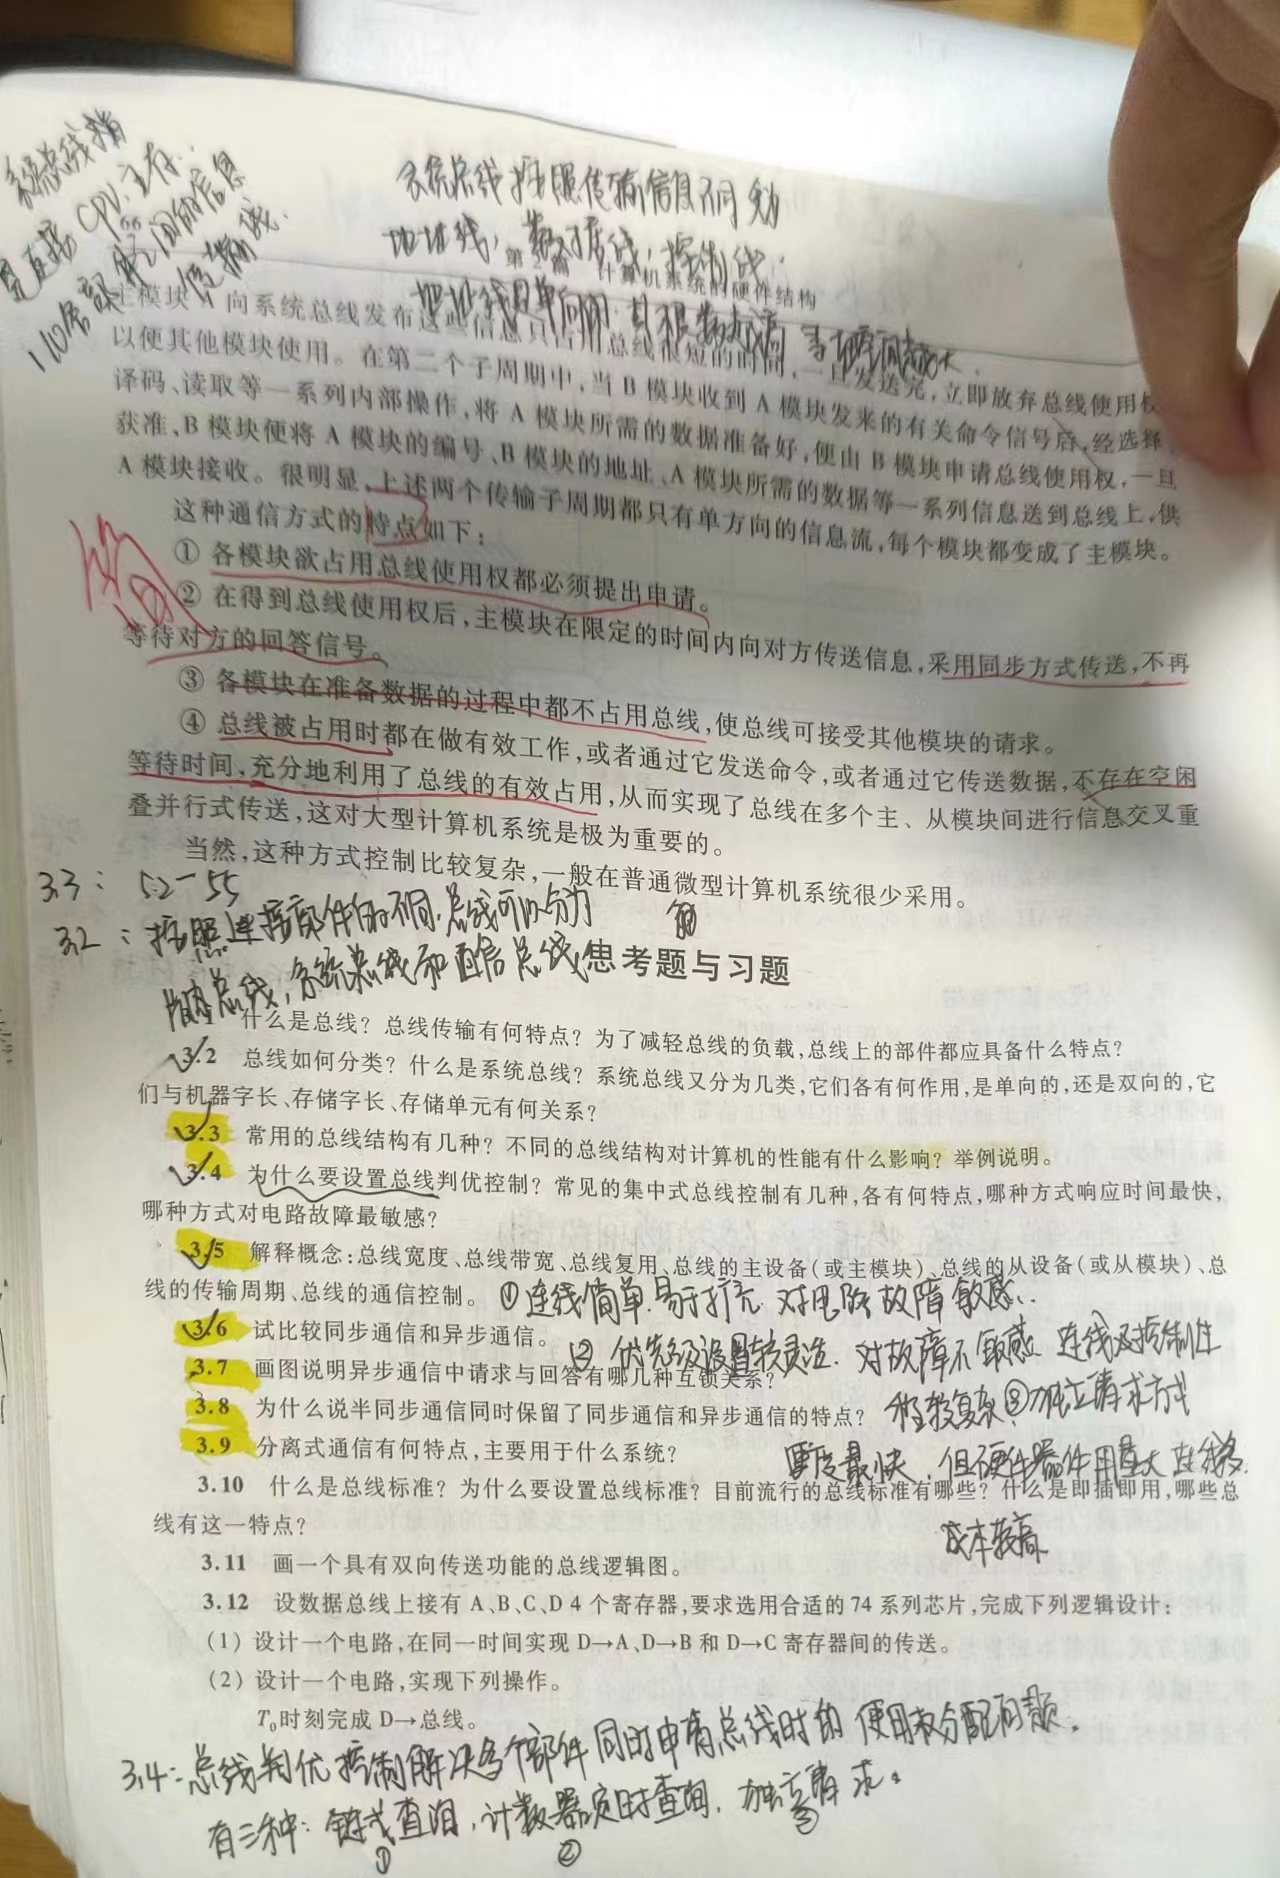 系统总线指
是连接CPU、主存、
I/O各部件之间的信息
传输线.
系统总线按照传输信息不同分为
地址线,数据线,控制线.
第2篇 计算机系统的硬件结构
地址线是单向的
主模块A向系统总线发布这些信息只占用总线很短的时间,一旦发送完,立即放弃总线使用权,
以便其他模块使用。在第二个子周期中,当B模块收到A模块发来的有关命令信号后,经选择、
译码、读取等一系列内部操作,将A模块所需的数据准备好,便由B模块申请总线使用权,一旦
获准,B模块便将A模块的编号、B模块的地址、A模块所需的数据等一系列信息送到总线上,供
A模块接收。很明显,上述两个传输子周期都只有单方向的信息流,每个模块都变成了主模块。
这种通信方式的特点如下:
① 各模块欲占用总线使用权都必须提出申请。
② 在得到总线使用权后,主模块在限定的时间内向对方传送信息,采用同步方式传送,不再
等待对方的回答信号。
③ 各模块在准备数据的过程中都不占用总线,使总线可接受其他模块的请求。
④ 总线被占用时都在做有效工作,或者通过它发送命令,或者通过它传送数据,不存在空闲
等待时间,充分地利用了总线的有效占用,从而实现了总线在多个主、从模块间进行信息交叉重
叠并行式传送,这对大型计算机系统是极为重要的。
当然,这种方式控制比较复杂,一般在普通微型计算机系统很少采用。
3.3: 52-55
3.2: 按照连接部件的不同,总线可以分为
片内总线,系统总线和通信总线
思考题与习题
什么是总线?总线传输有何特点?为了减轻总线的负载,总线上的部件都应具备什么特点?
3.2 总线如何分类?什么是系统总线?系统总线又分为几类,它们各有何作用,是单向的,还是双向的,它
们与机器字长、存储字长、存储单元有何关系?
3.3 常用的总线结构有几种?不同的总线结构对计算机的性能有什么影响?举例说明。
3.4 为什么要设置总线判优控制?常见的集中式总线控制有几种,各有何特点,哪种方式响应时间最快,
哪种方式对电路故障最敏感?
3.5 解释概念:总线宽度、总线带宽、总线复用、总线的主设备(或主模块)、总线的从设备(或从模块)、总
线的传输周期、总线的通信控制。
①连线简单.易于扩充.对电路故障敏感.
3.6 试比较同步通信和异步通信。
② 优先级设置较灵活.对故障不敏感 连线及控制过
3.7 画图说明异步通信中请求与回答有哪几种互锁关系?
3.8 为什么说半同步通信同时保留了同步通信和异步通信的特点?
程较复杂③独立请求方式
3.9 分离式通信有何特点,主要用于什么系统?
最快,但硬件器件用量大 连线多.
3.10 什么是总线标准?为什么要设置总线标准?目前流行的总线标准有哪些?什么是即插即用,哪些总
线有这一特点?
成本较高
3.11 画一个具有双向传送功能的总线逻辑图。
3.12 设数据总线上接有A、B、C、D 4个寄存器,要求选用合适的74系列芯片,完成下列逻辑设计:
(1) 设计一个电路,在同一时间实现D→A、D→B和D→C寄存器间的传送。
(2) 设计一个电路,实现下列操作。
T₀时刻完成D→总线。
3.4:总线判优控制解决多个部件同时申请总线时的使用权分配问题.
有三种:链式查询,计数器定时查询,独立请求。
① ② ③